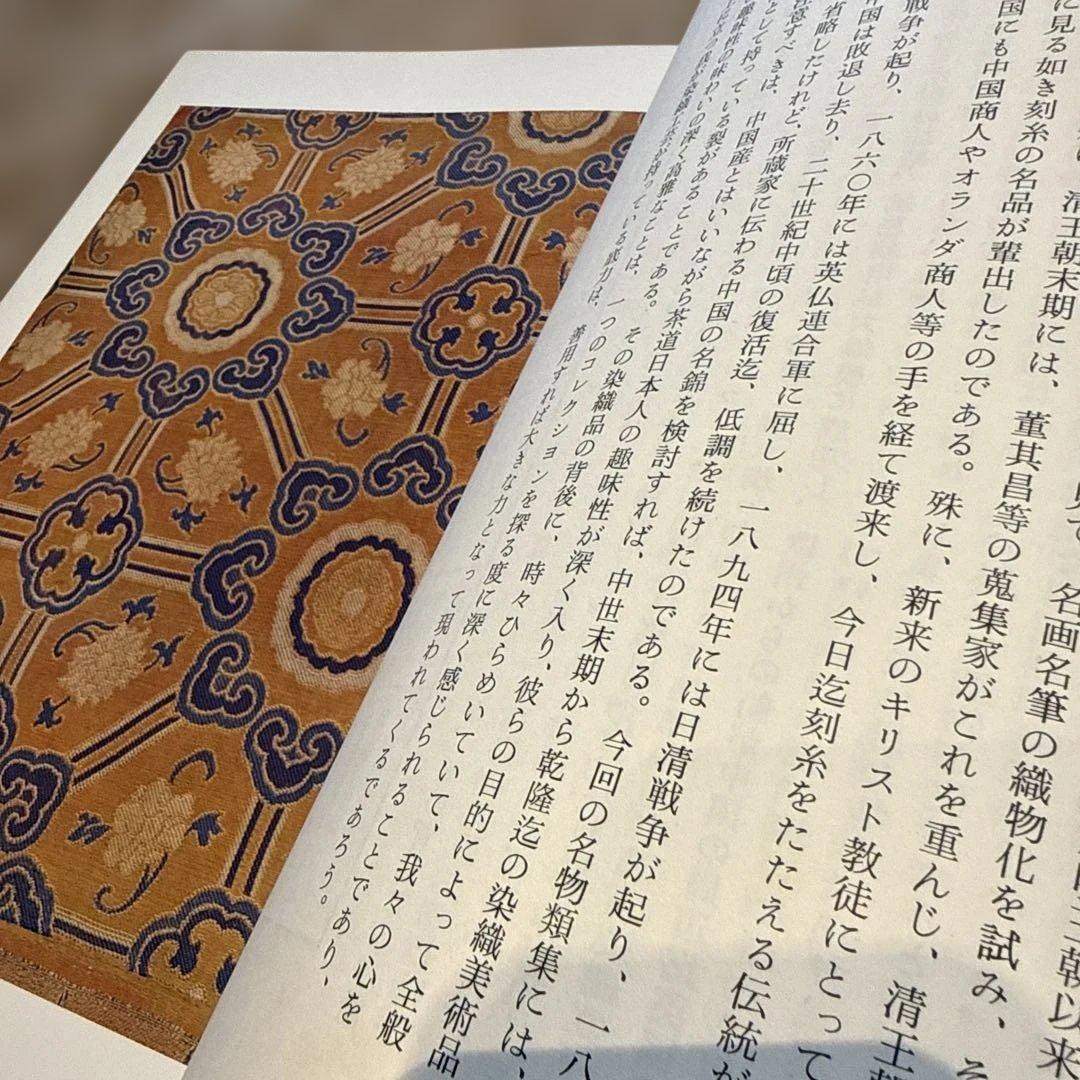 王朝以来
見て、名画名筆の織物化を試み、そ
清王朝末期には、董其昌等の蒐集家がこれを重んじ、清王朝
に見る如き刻糸の名品が輩出したのである。殊に、新来のキリスト教徒にとって
国にも中国商人やオランダ商人等の手を経て渡来し、今日迄刻糸をたたえる伝統が
戦争が起り、一八六〇年には英仏連合軍に屈し、一八九四年には日清戦争が起り、一八
国は敗退し去り、二十世紀中頃の復活迄、低調を続けたのである。今回の名物類集には、
省略したけれど、所蔵家に伝わる中国の名錦を検討すれば、中世末期から乾隆迄の染織美術品
注意すべきは、中国産とはいいながら茶道日本人の趣味性が深く入り、彼らの目的によって全般
として持っている裂があることである。その染織品の背後に、時々ひらめいていて、我々の心を
趣味性の味わいの深く高雅なことは、一つのコレクションを探る度に深く感じられることであり、
染織工芸が持っている魅力は、善用すれば大きな力となって現われてくるであろう。